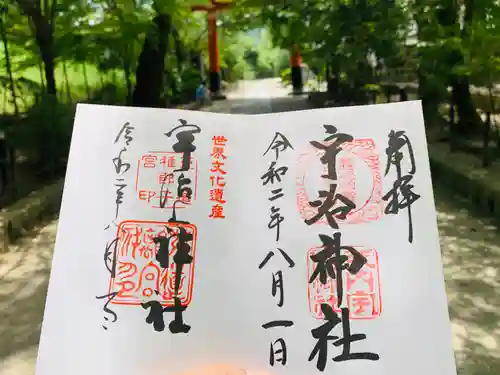 奉拝
宇治神社
令和二年八月一日
世界文化遺産
宇治上神社
令和二年八月一日